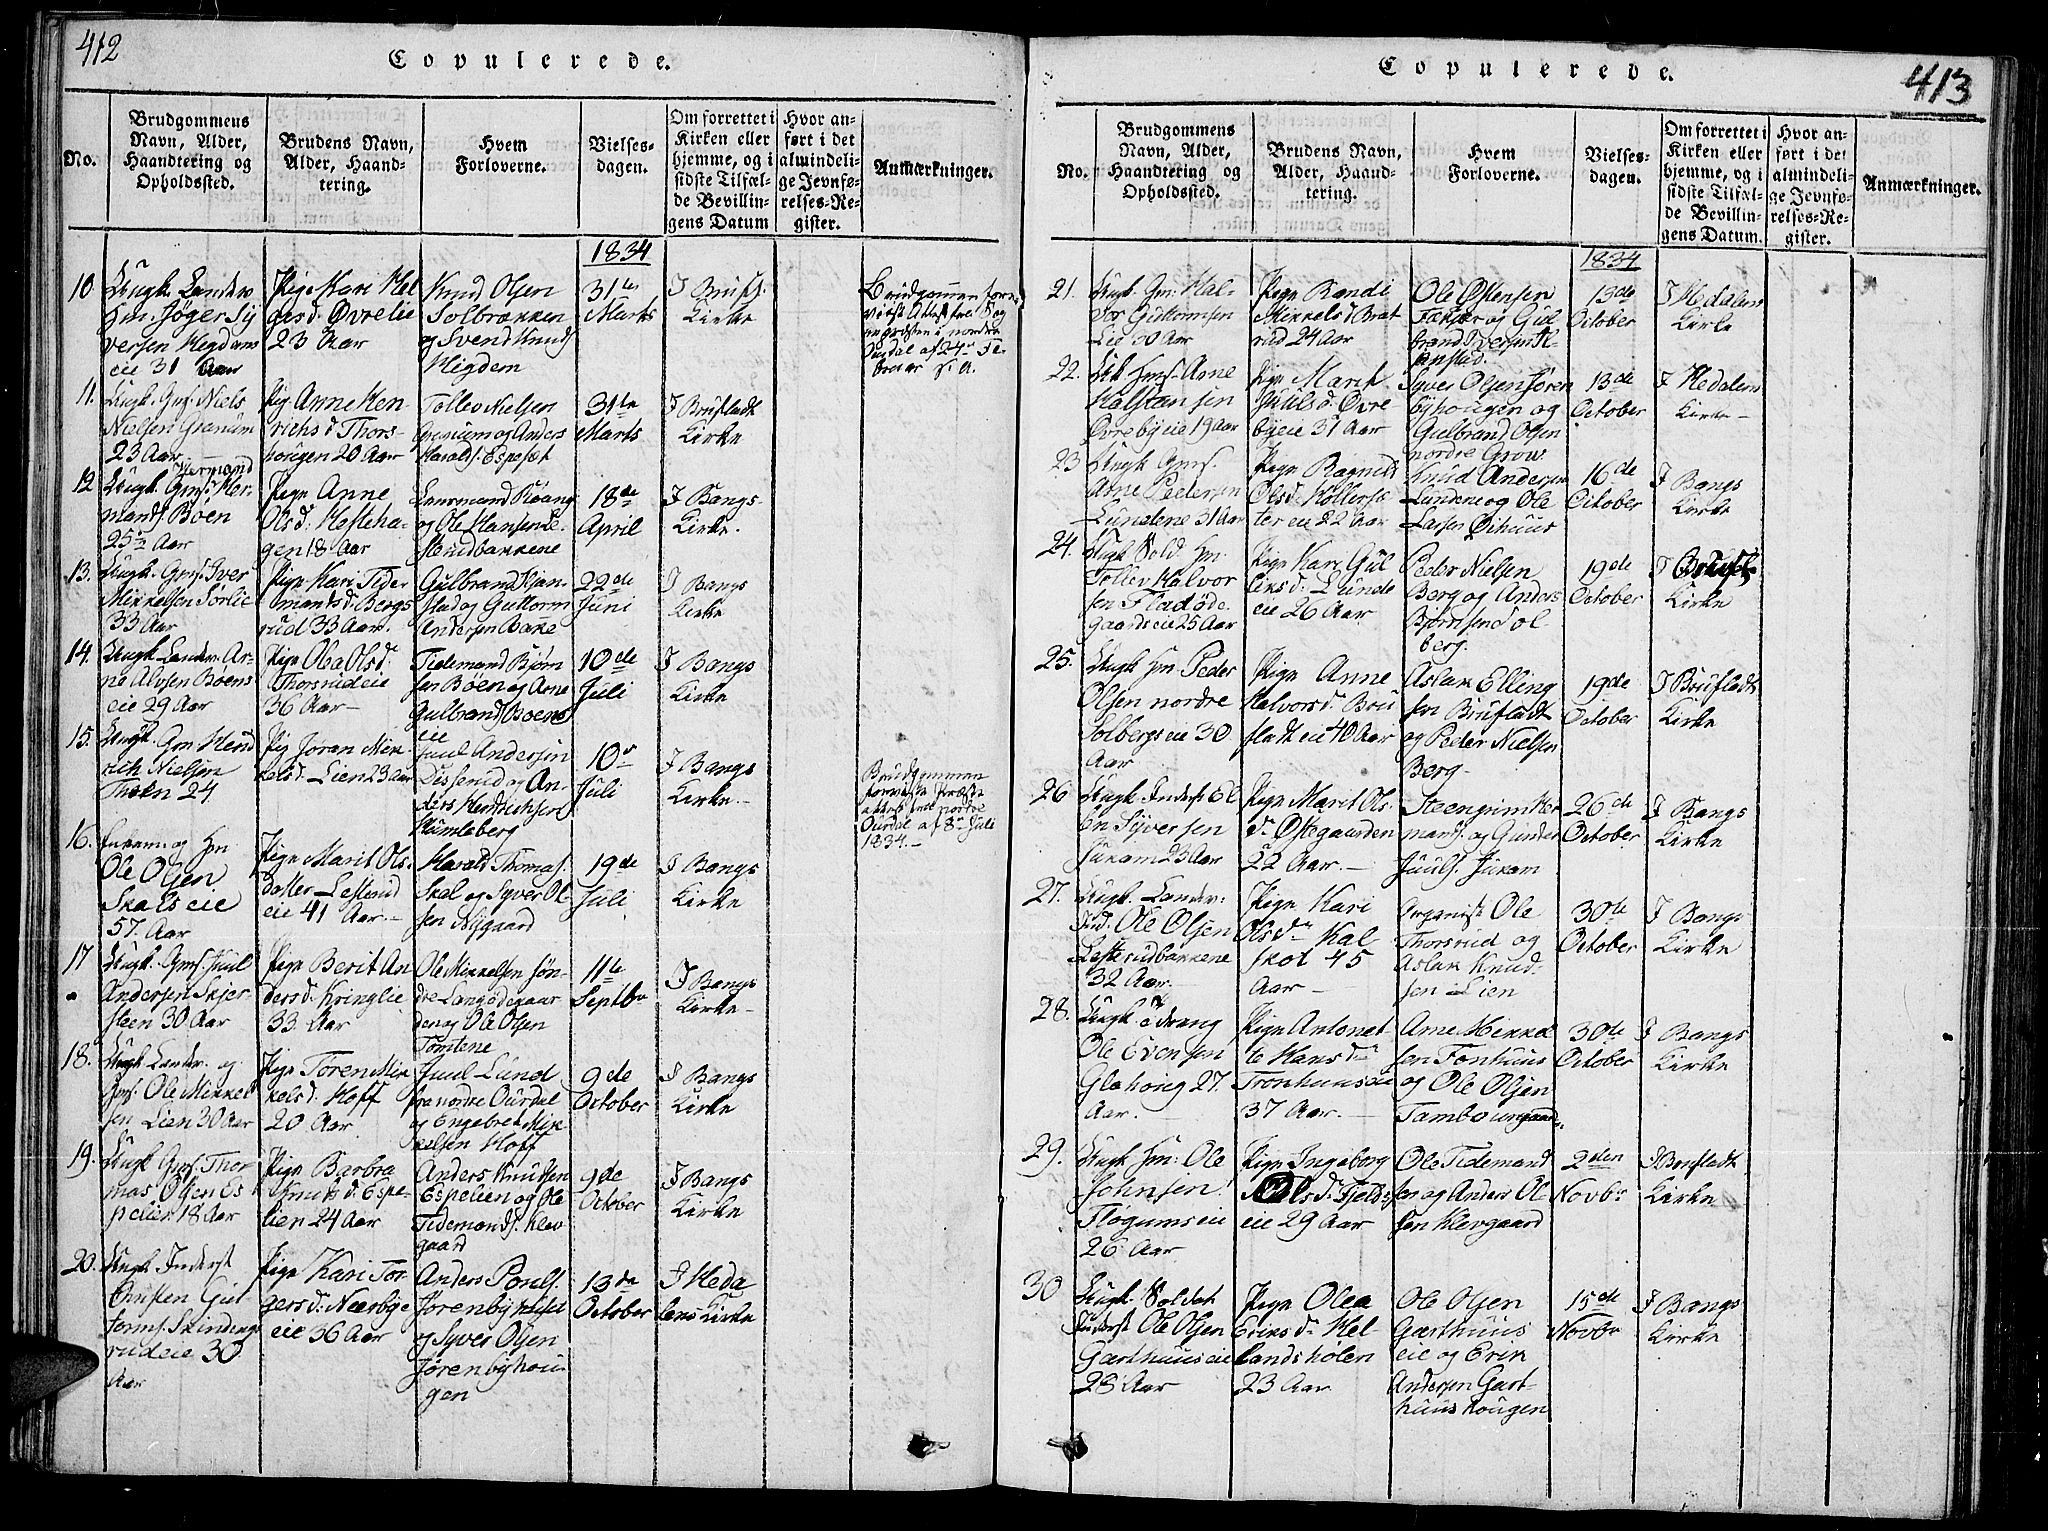 412
Copulerede.
No.
Brudgommens
Navn, Alder,
Haandtering og
Opholdssted.
Brudens Navn,
Alder, Haand-
tering.
Hvem
Forloverne.
Vielses-
dagen.
Om forrettet i
Kirken eller
hjemme, og i
sidste Tilfæl-
de Bevillin-
gens Datum
Hvor an-
ført i det
almindeli-
ge Jevnfø-
relses-Re-
gister.
Anmærkninger.
1834
10
Ungk. Landev
Sy
versen Hegdems
eie 31 Aar
Pige Kari Hel
gesd. Øvrelie
23 Aar
Knud Olsen
Solbrækken
og Svend Knuds
Higdem
31te
Marts
I Brufl.
Kirke
Brudgommen
nordre
Ourdal af 24de Fe-
bruar d. A.
11.
Ungk. Gms. Niels
Nielsen Granum
23 Aar
Pig. Anne Hen-
richs d. Thors-
hougen 20 Aar
Tollev Nielsen
Granum og Anders
Haralds. Espeset
31te
Marts
I Brufladt
Kirke
12
Hermand
Ungk. Gms. Her-
mands. Böen
25 Aar
Pige Anne
Olsd. Hesteha-
gen 18 Aar
og Ole Hansen Le-
sterudbakkene
18de
April
I Bangs-
Kirke.
13.
Ungk. Gms. Iver
Mikkelsen Sørlie
33 Aar
Pige Kari Tide-
mandsd. Bergs
rud 33 Aar.
Gulbrand Kjen-
stad og Guttorm
Andersen Bakke
22de
Juni
I Bangs
Kirke
14.
Ungk. Landev. Ar-
ne Alvsen Böens
eie 29 Aar
Pige Oba Olsd.
Thorsrudeie
36 Aar
Tidemand Bjørn
sen Böen og Arne
Gulbrands Boens
eie
10de
Juli
I Bangs
Kirke
15.
Ungk. Gm Hend
rich Nielsen
Thoen 24
Pig Jøran Mik-
kelsd. Lien 23 aar
Juul Andersen
Disserud og An-
ders Hendrichsen
Humleberg
10de
Juli
I Bangs
Kirke.
Brudgommen
forviiste Præste
attest fra nordre
Ourdal af 8de Juli
1834.
16.
Enkem. og Hm
Ole Olsen
Skalseie
57. Aar
Pige Marit Ols-
datter Lesterud
eie 41 Aar.
Harald Thomas.
Skal og Syver Ol
sen Nijgaard
19de
Juli
I Bangs
Kirke
17
Ungk. Gms. Juul
Andersen Skjer
steen 30 Aar
Pige Berit An
dersd. Kringlie
33. Aar
Ole Mikkelsen søn-
dre Langødegaar
den og Ole Olsen
Tomtene
11te
Septbr
I Bangs
Kirke
18.
Ungk. Landev. og
Gms. Ole Mikkel
sen Lien 30 Aar
Pige Tøren Mik
kelsd. Hoff
20 Aar
Juul Lund
fra nordre Ourdal
og Engebret Mik-
kelsen Hoff
9de
October
I Bangs
Kirke
19.
Ungk Gms. Thor
mas Olsen Es
pelien 18 Aar
Pige Barbra
Knuds d. Espe-
lien 24 Aar
Anders Knudsen
Espelien og Ole
Tidemands. Klev
gaard
9de
October
I Bangs
Kirke
20.
Ungk Inderst
Christen Gut
torms. Skinding
rudeie 30
Aar
Pige Kari Tor
gersd. Nærbÿe
eie 36 Aar
Anders Pouls.
og Syver Olsen
Jørenbÿhou-
gen
13de
October
I Heda
lens Kirke
413
Copulerede.
No.
Brudgommens
Navn, Alder,
Haandtering og
Opholdssted.
Brudens Navn,
Alder, Haand-
tering.
Hvem
Forloverne.
Vielses-
dagen.
Om forrettet i
Kirken eller
hjemme, og i
sidste Tilfæl-
de Bevillin-
gens Datum.
Hvor an-
ført i det
almindeli-
ge Jevnfø-
relses-Re-
gister.
Anmærkninger.
1834
21.
Ungk. Gm. Hal-
Guttormsen
Lie Aar
Pige Randi
Mikkelsd Brat
rud 24 Aar
Ole Østensen
og Gul
brand Iversen
13de
October
I Hedalen
Kirke
22.
Gms. Arne
Halstensen
Øvrebÿeie 19 Aar
Pige Marit
Juuls d. Øvre
bÿeie 31 Aar
Syver Olsen Jøren
bÿhougen og
Gulbrand Olsen
nordre Grøv.
13de
October
I Hedalen
Kirke
23
Ungk Gms.
Arne Pedersen
Lundene 31 Aar
Pige Ragnild
Ols d.
ter eie 22 Aar
Knud Andersen
Lundene og Ole
Larsen
16de
October
I Bangs
Kirke
24.
Ungk Sold. Hm.
Tollev Halvor
sen Fladøde-
gaards eie 25 Aar
Pige Kari Gul
eiks d. Lunde
eie 26 Aar
Peder Nielsen
Berg og Anders
Bjørnsen Sol-
berg.
19de
October
I Brufl.
Kirke
25.
Ungk Hm. Peder
Olsen nordre
Solbergs eie 30
Aar
Pige Anne
Halvors d. Bru
fladt eie 40 Aar
Aslak Elling
sen Brufladt
og Peder Nielsen
Berg
19de
October
I Brufladt
Kirke
26
Ungk. Inderst El
en Syversen
Juram 23 Aar
Pige Marit Ols
d. Østegaarden
22 Aar.
Steengrim Her
mands. og Gunder
Juuls. Juram
26de
October
I Bangs
Kirke
27.
Ungk. Landev.
Ind. Ole Olsen
Lesterudbakkene
32 Aar.
Pige Kari
Ols d. Kal
skot 45
Aar
Organist Ole
Thorsrud og
Aslak Knud-
sen Lien
30te
October
I Bangs
Kirke
28.
Ungk.
Ole Evensen
Glahoug 27.
Aar.
Pige Antonet-
te Hans d.
Tronhuuseie
37 Aar.
Arne Mikkel
sen Fonhuus
og Ole Olsen
Tambourgaard
30te
October
I Bangs
Kirke
29.
Ungk Hm. Ole
Johnsen
Fløgumseie
26 Aar
Pige Ingeborg
Olsd.
eie 29 Aar
Ole Tidemand
sen og Anders Ol
sen Klevgaard
2den
Novbr
I Brufladt
Kirke
30
Ungk. Soldat
Inderst Ole Olsen
Garthuuseie
28 Aar
Pige Olea
Eriks d. Hel-
lands hølen
23 Aar
Ole Olsen
Garthuus
eie og Erik
Andersen Gart-
huushougen
15de
Novbr
I Bangs
Kirke